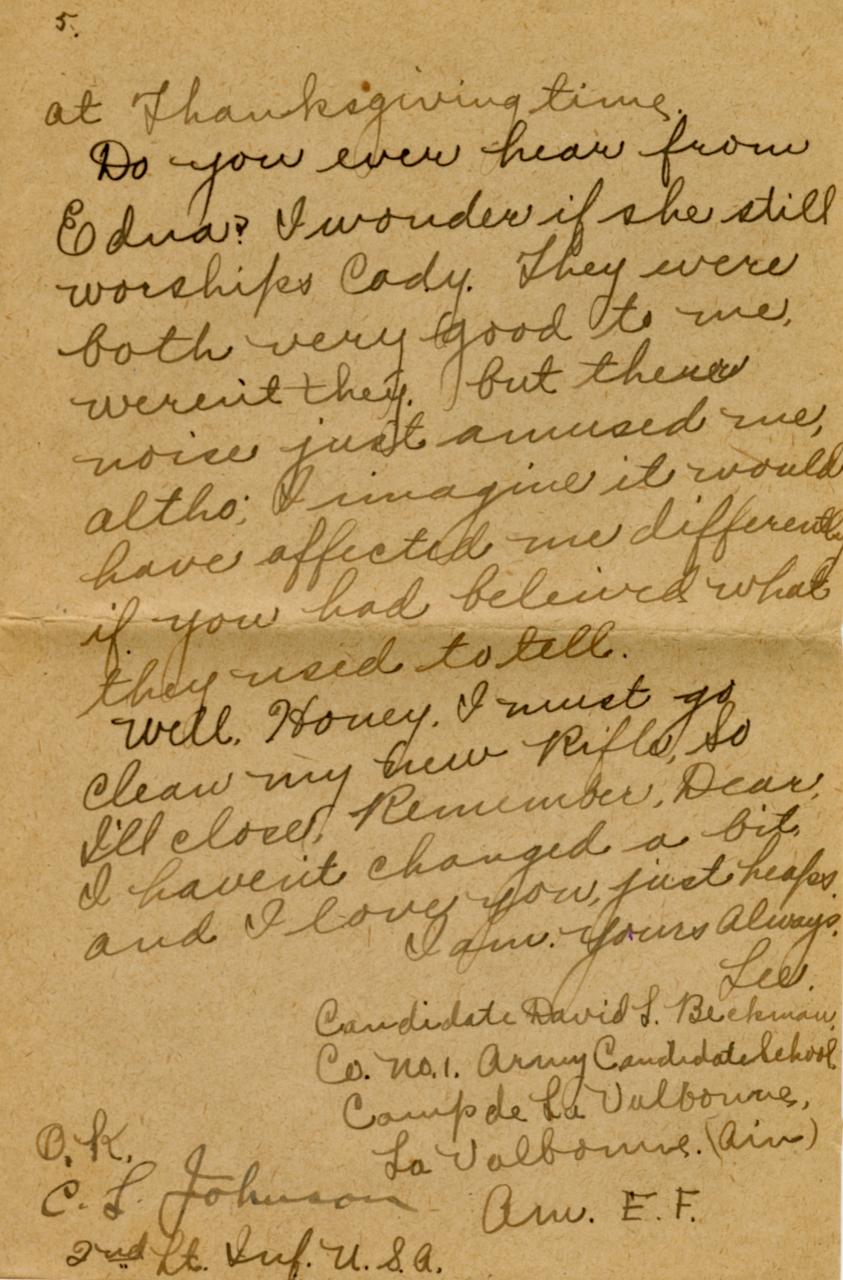 5.
at Thanksgiving time.
Do you ever hear from
Edna? I wonder if she still
worships Cady. They were
both very good to me,
weren't they. but there
noise just amused me,
altho; I imagine it would
have affected me differently
if you had beleived what
they used to tell.
Well, Honey, I must go
clean my new Rifle, so
I'll close, Remember, Dear,
I haven't changed a bit,
and I love you, just heaps.
I am. Yours Always.
Lee.
Candidate David L. Beckman,
Co. No. 1. Army Candidate School
Camp de La Valbonne,
La Valbonne. (Ain)
Am. E. F.
O.K.
C. L. Johnson
2nd Lt. Inf. U.S.A.